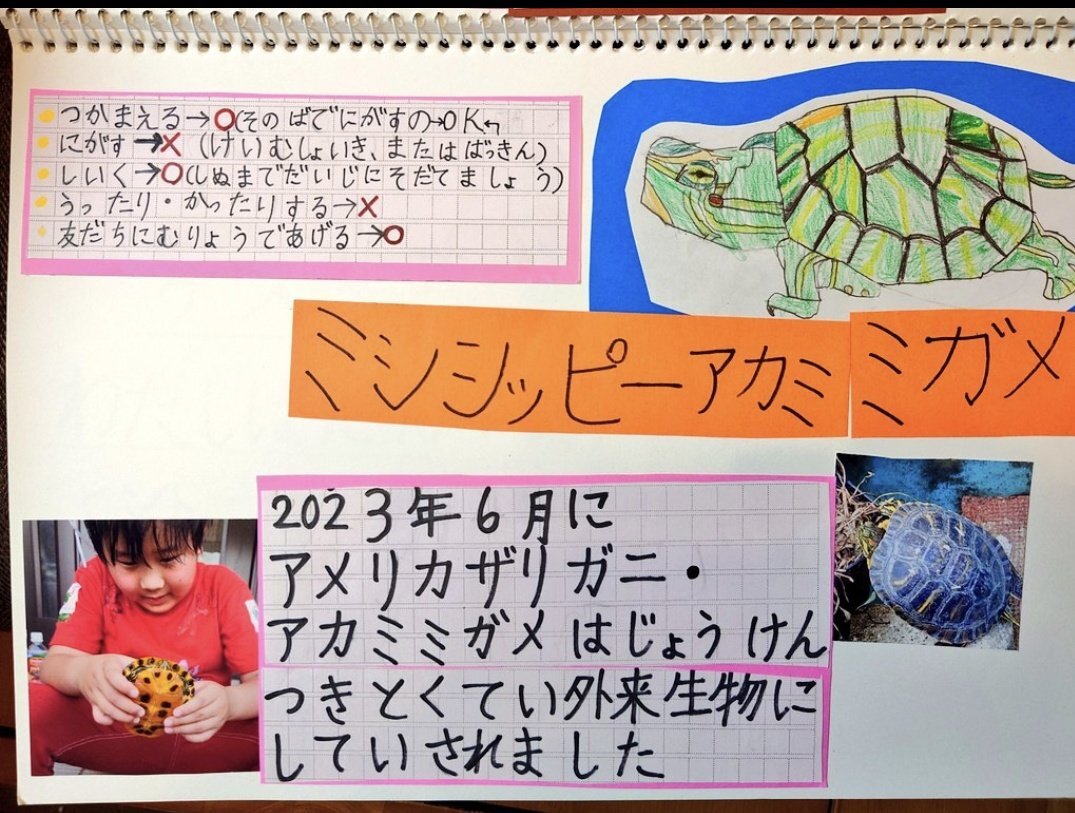 つかまえる→○(そのばでにがすの→OK)
にがす→×(けいむしょいき、またはばっきん)
しいく→○(しぬまでだいじにそだてましょう)
うったり・かったりする→×
友だちにむりょうであげる→○
ミシシッピーアカミミガメ
2023年6月に
アメリカザリガニ・
アカミミガメはじょうけん
つきとくてい外来生物に
していされました